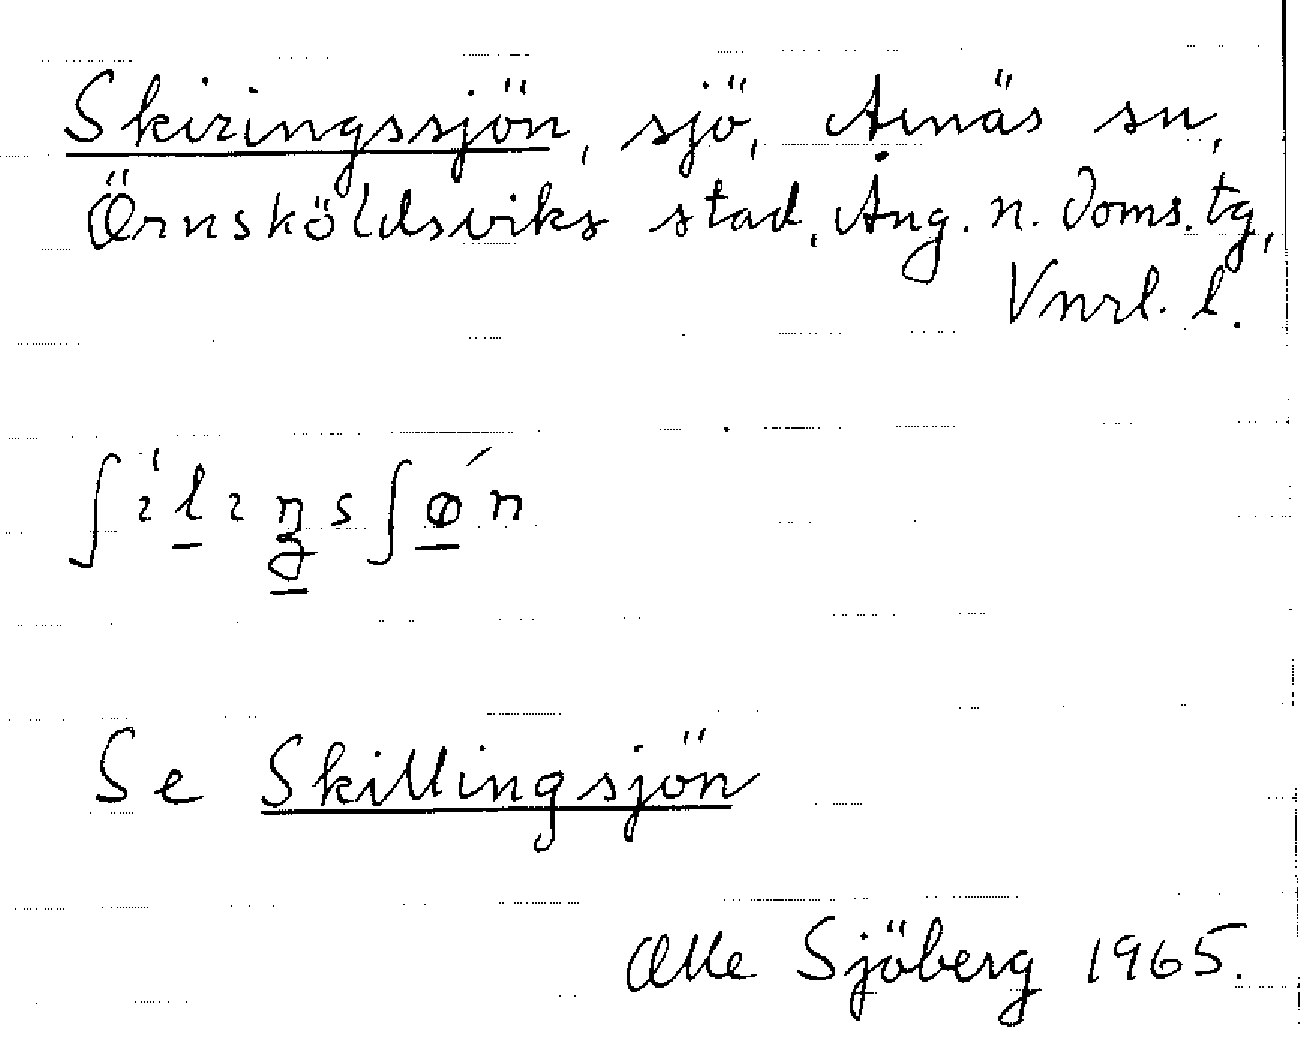 Skiringssjön, sjö, Arnäs sn,
Örnsköldsviks stad, Ång. n. doms. tg,
Vnrl. l.
Se Skillingsjön
Olle Sjöberg 1965.